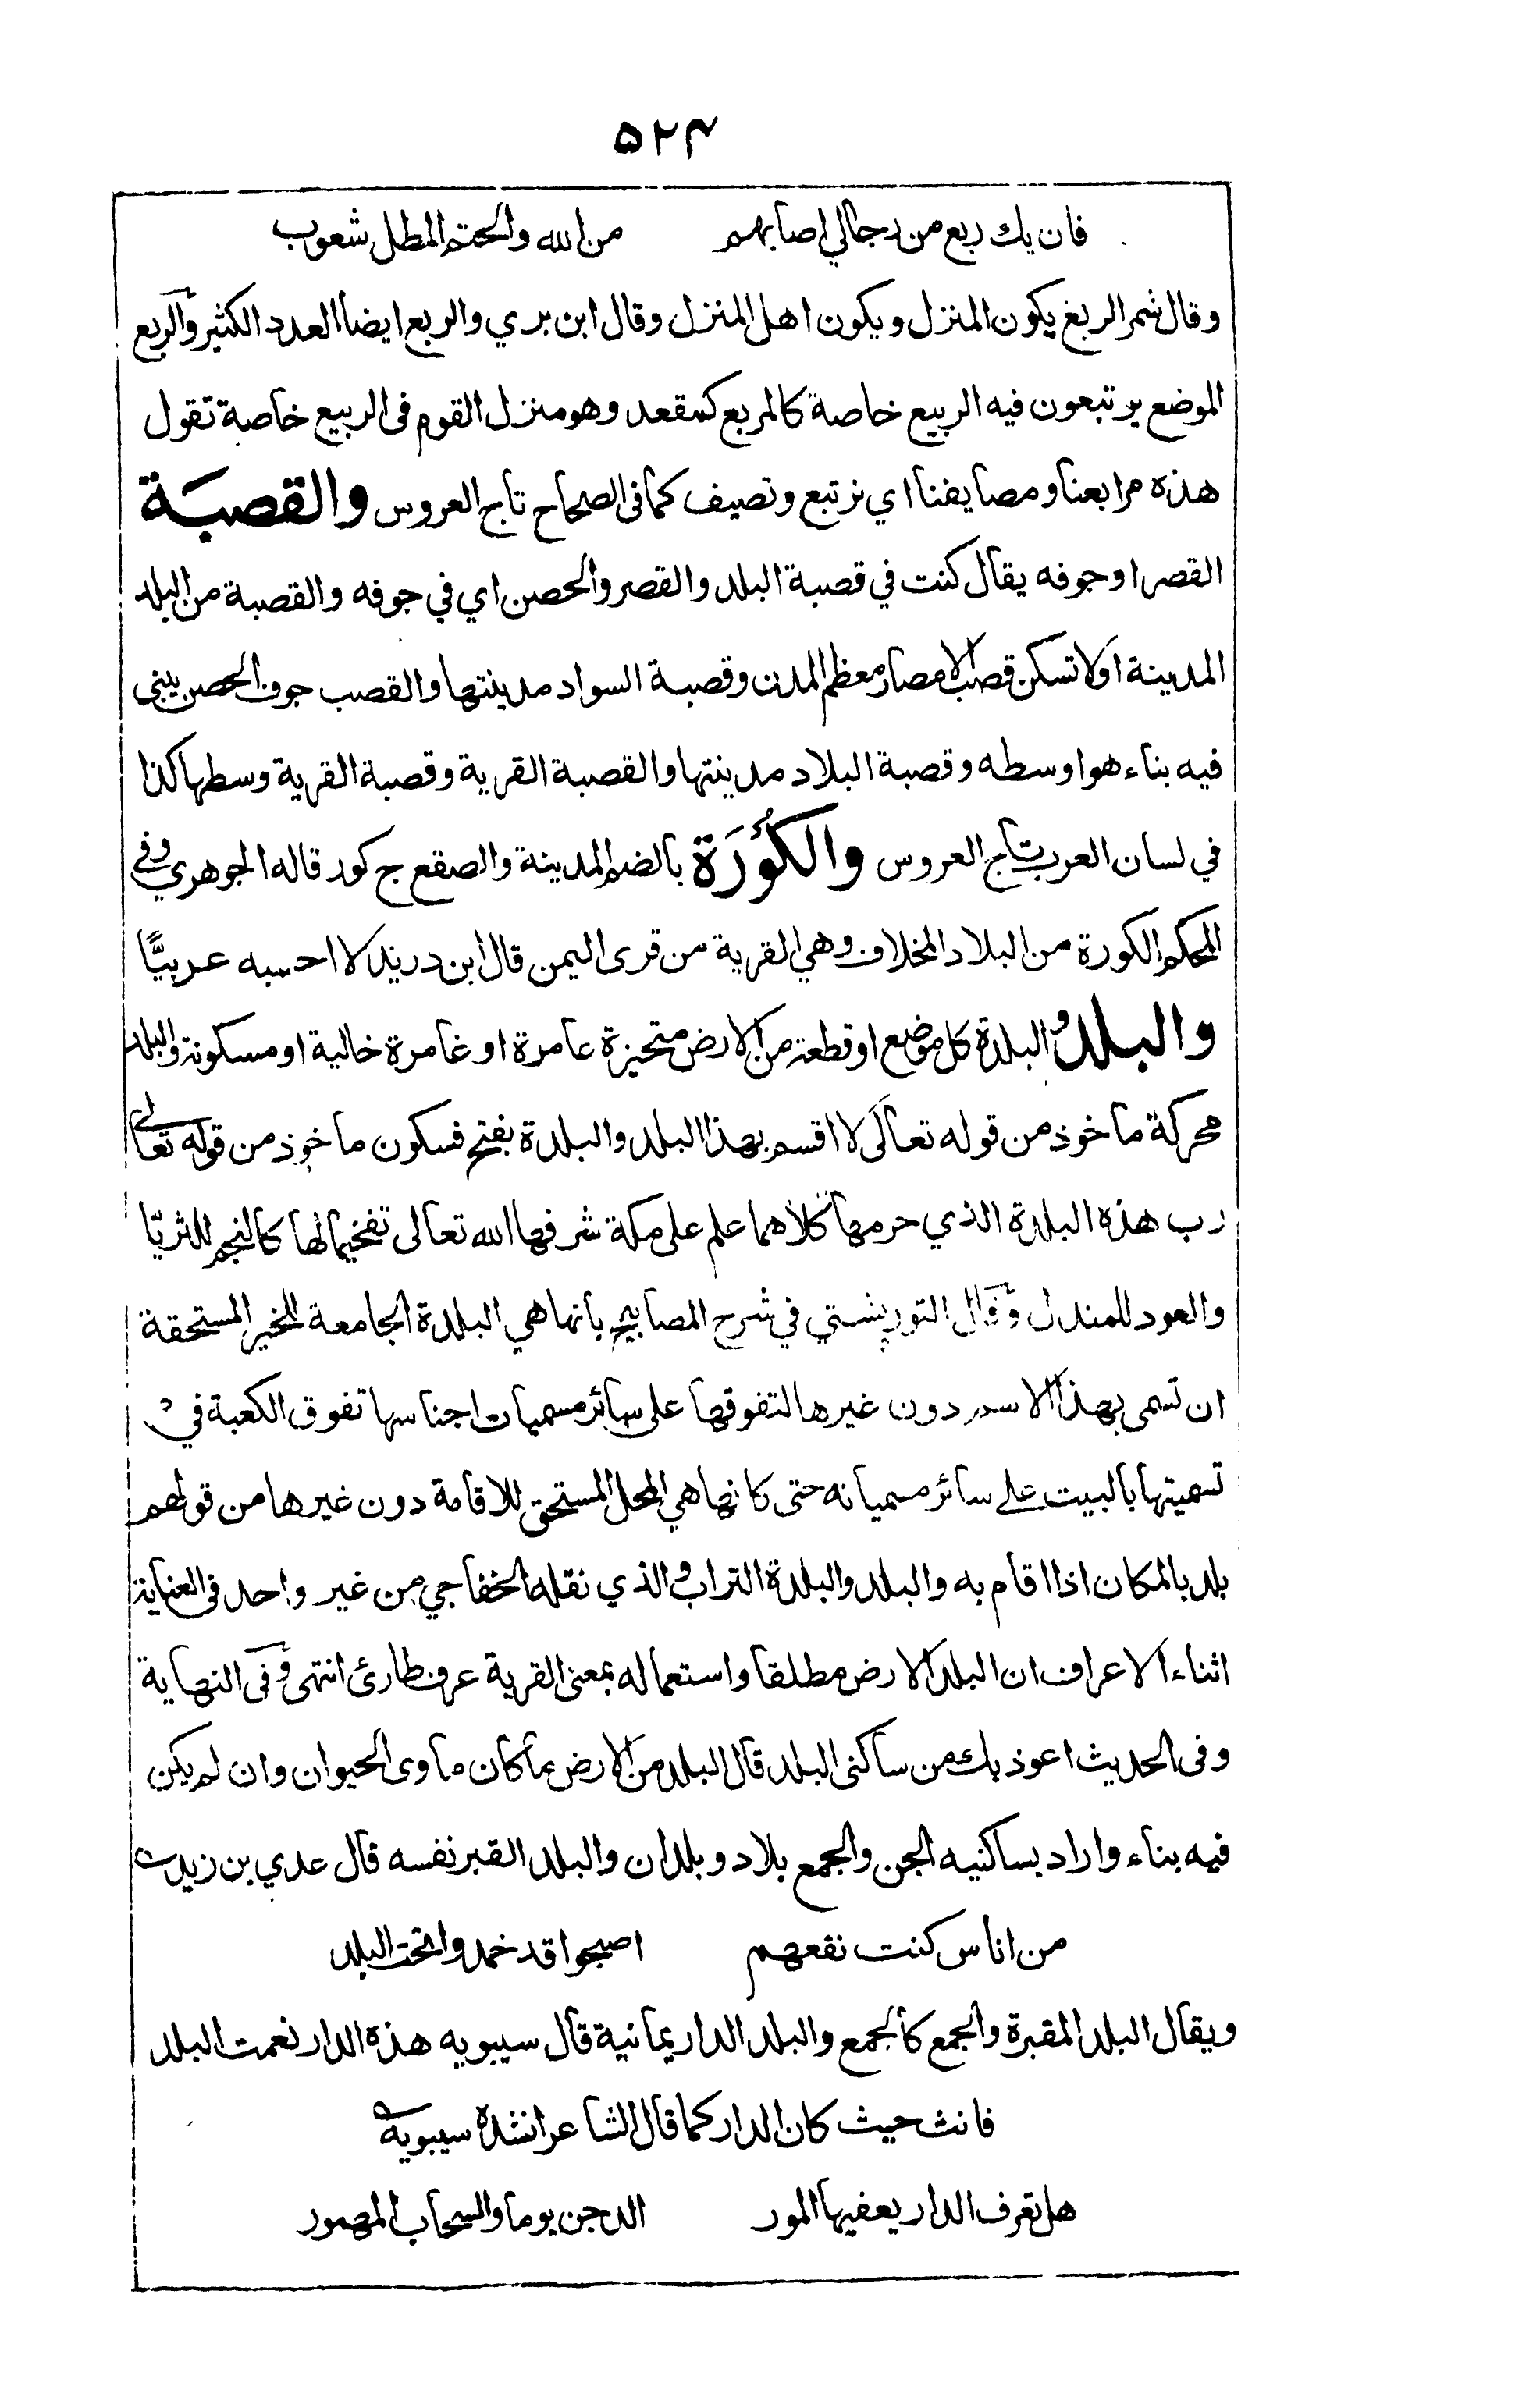 ۵۲۴
فان يك ربع من رجالي اصابهم من الله والحتم المطل شعوب
وقال شمر الربع يكون المنزل ويكون اهل المنزل وقال ابن بري والربع ايضا العدد الكثير والربع
الموضع يرتبعون فيه الربيع خاصة كالمربع كمقعد وهو منزل القوم فى الربيع خاصة تقول
هذه مرابعنا ومصايفنا اي نرتبع ونصيف كما فى الصحاح تاج العروس والقصبَة
القصر او جوفه يقال كنت في قصبة البلد والقصر والحصن اي في جوفه والقصبة من البلد
المدينة اولا تسكن قصب الامصار معظم المدن وقصبة السواد مدينتها والقصب جوف الحصن يبنى
فيه بناء هو اوسطه وقصبة البلاد مدينتها والقصبة القرية وقصبة القرية وسطها كذا
في لسان العرب تاج العروس والكُوْرَة بالضم المدينة والصقع ج كور قاله الجوهري وفي
المحكم الكورة من البلاد المخلاف وهي القرية من قرى اليمن قال ابن دريد لا احسبه عربيًّا
والبلدُ و البلدة كل موضع او قطعة من الارض متحيزة عامرة او غامرة خالية او مسكونة والبلد
محركة ماخوذ من قوله تعالى لا اقسم بهذا البلد والبلدة بفتح فسكون ماخوذ من قوله تعالى
رب هذه البلدة الذي حرمها كلاهما علم على مكة شرفها الله تعالى تفخيما لها كالنجم للثريّا
والعود للمندل وقال التوربشتي في شرح المصابيح بانها هي البلدة الجامعة للخير المستحقة
ان تسمى بهذا الاسم دون غيرها لتفوقها على سائر مسميات اجناسها تفوق الكعبة في
تسميتها بالبيت على سائر مسمياته حتى كانها هي المحل المستحق للاقامة دون غيرها من قولهم
بلد بالمكان اذا اقام به والبلد والبلدة التراب والذي نقله الخفاجي من غير واحد فى العناية
اثناء الاعراف ان البلد الارض مطلقا واستعماله بمعنى القرية عرف طارئ انتهى وفى النهاية
وفى الحديث اعوذ بك من ساكنى البلد قال البلد من الارض ما كان ماوى الحيوان وان لم يكن
فيه بناء واراد بساكنيه الجن والجمع بلاد وبلدان والبلد القبر نفسه قال عدي بن زيد
من اناس كنت نفعهم اصبحوا قد خمدوا تحت البلد
ويقال البلد المقبرة والجمع كالجمع والبلد الدار يمانية قال سيبويه هذه الدار نعمت البلد
فانث حيث كان الدار كما قال الشاعر انشده سيبويه
هل تعرف الدار يعفيها المور الدجن يوما والسحاب المهمور